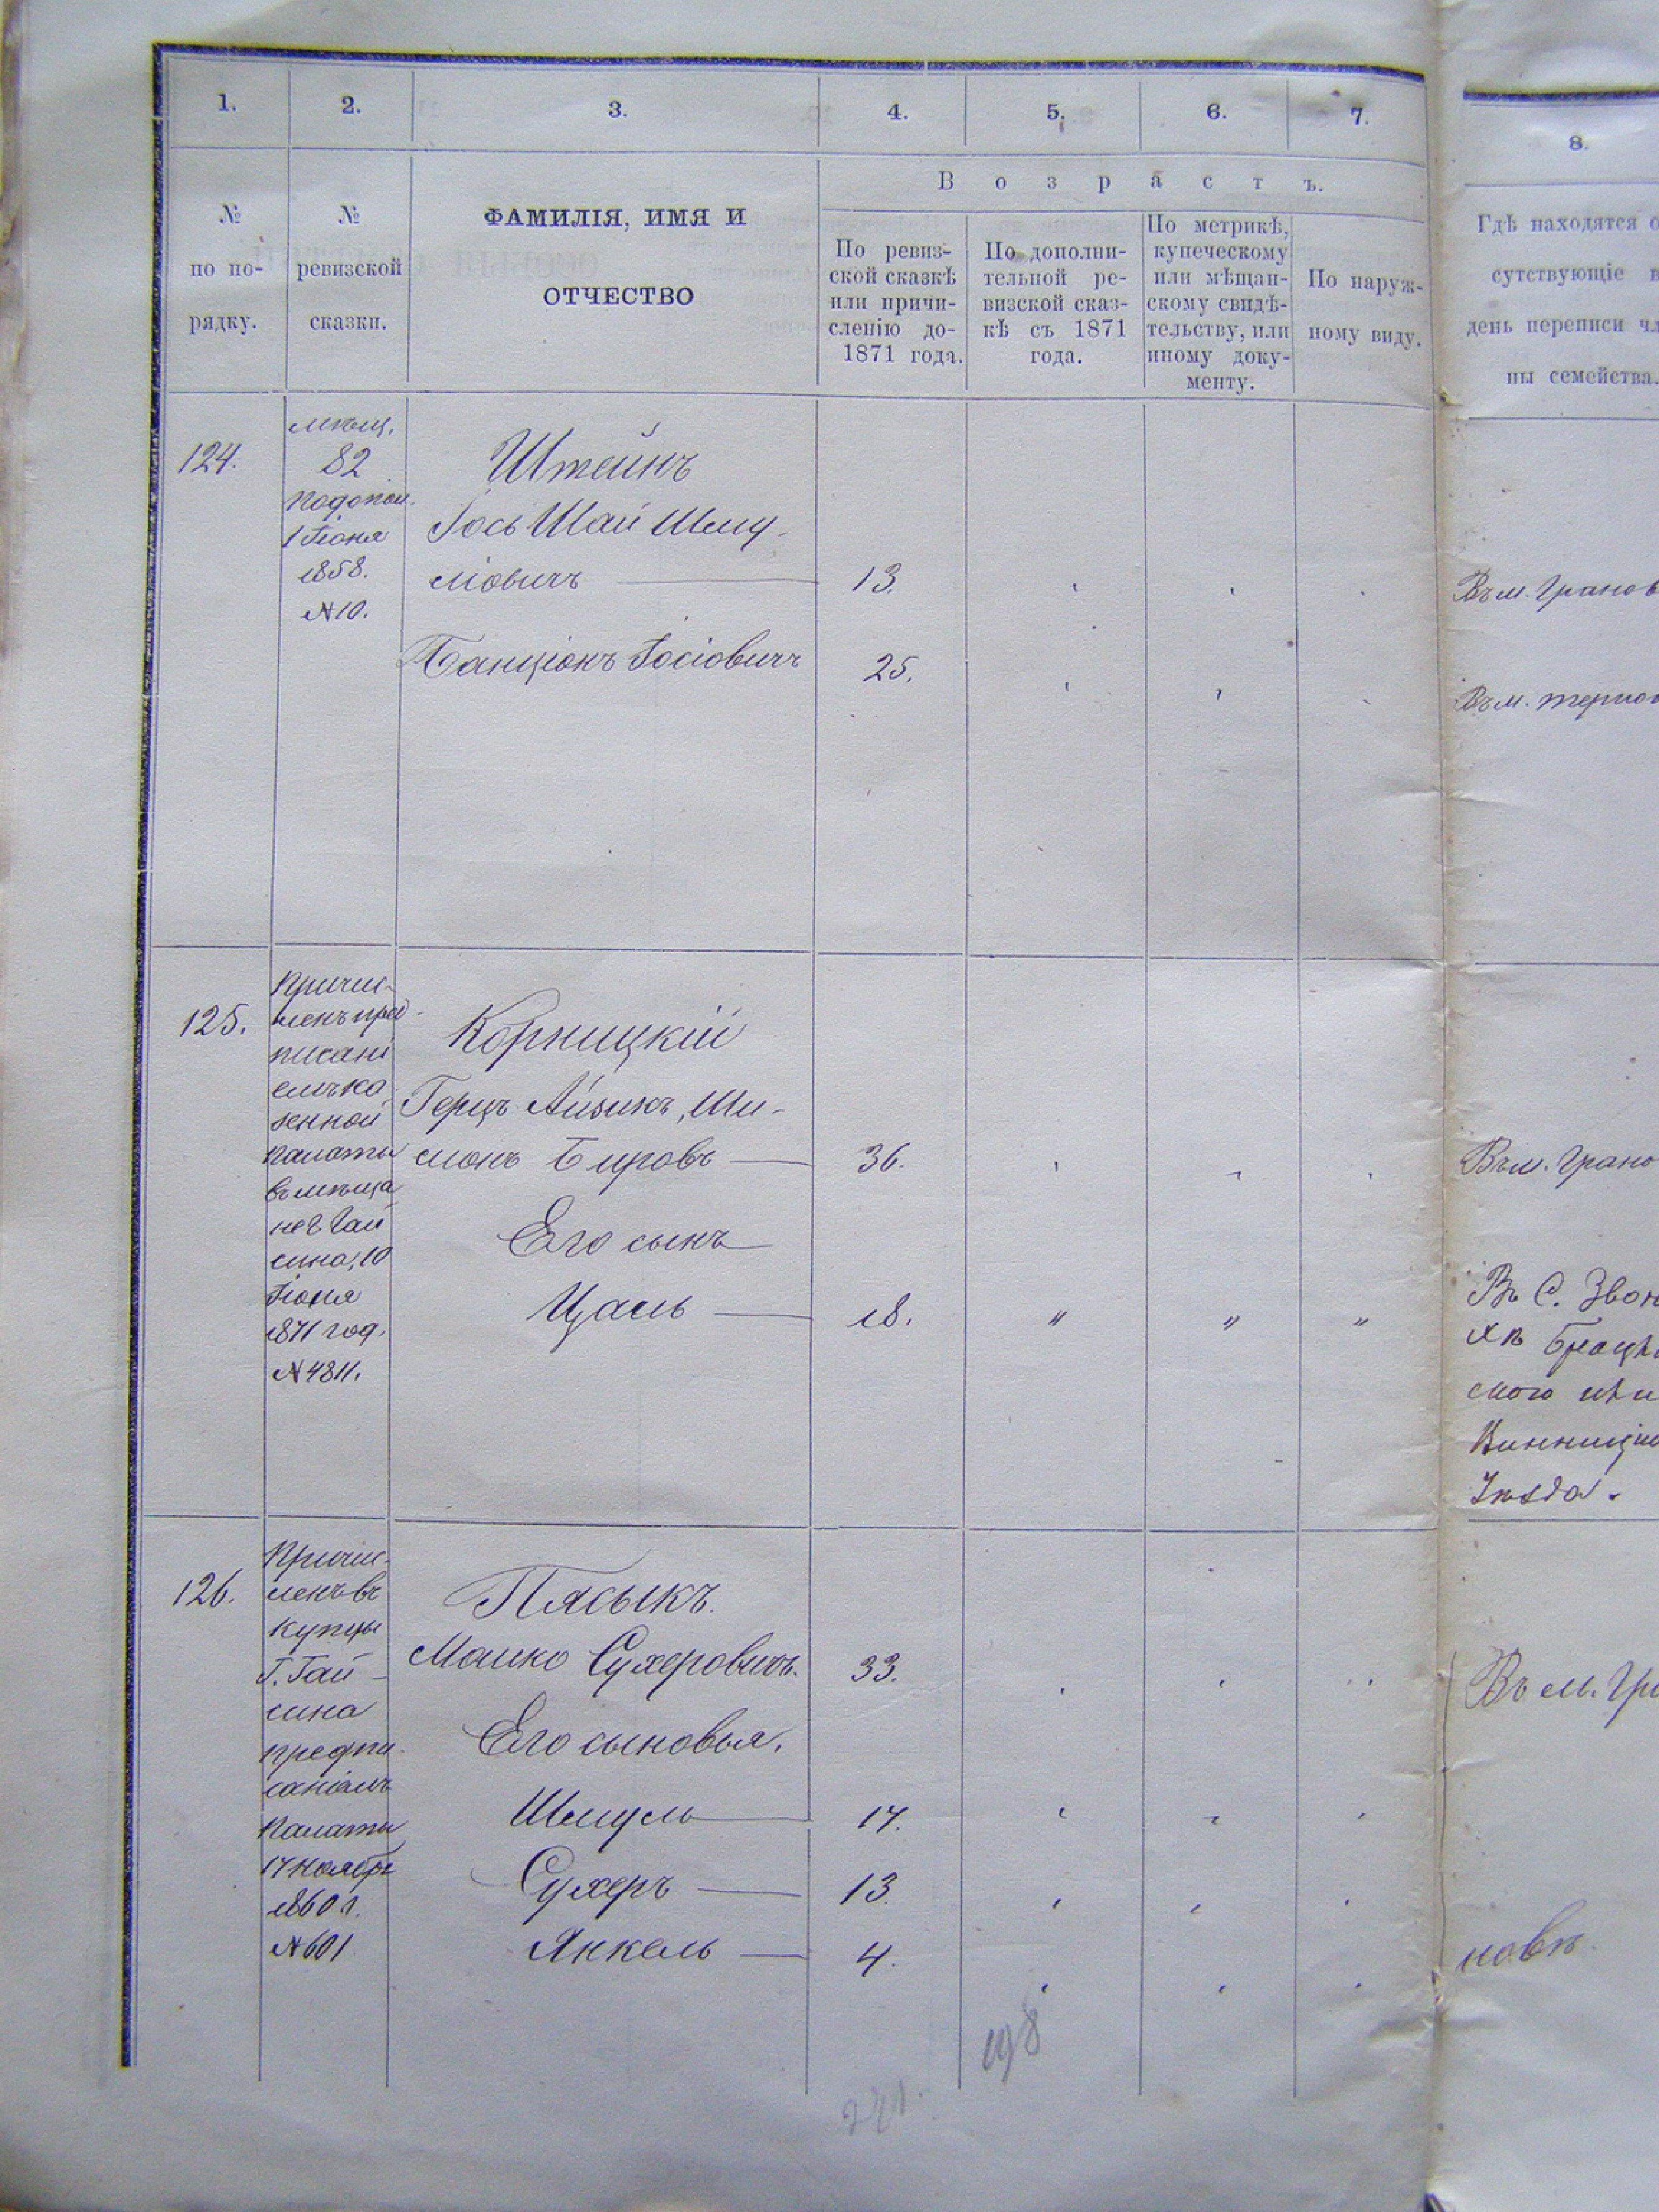 1.
2.
3.
4.
5.
6.
7.
8.
№
по по-
рядку.
№
ревизской
сказки.
ФАМИЛІЯ, ИМЯ И
ОТЧЕСТВО
Возрастъ.
По ревиз-
ской сказкѣ
или причи-
сленію до-
1871 года.
По дополни-
тельной ре-
визской сказ-
кѣ съ 1871
года.
По метрикѣ,
купеческому
или мѣщан-
скому свидѣ-
тельству, или
иному доку-
менту.
По наруж-
ному виду.
Гдѣ находятся о
сутствующіе в
день переписи чл
ны семейства.
124.
мѣщ.
82
1 Іюня
1858.
№10.
Штейнъ
Іось Шай Шму-
ліовичъ
13.
Въ м. Гранов
Банціонъ Іосіовичъ
25.
Въ м.
125.
Причис-
ленъ пред-
писані
емъ ка
зенной
палаты
въ мѣща
не г. Гай
сина, 10
Іюня
1871 год.
№4811.
Корницкій
Герцъ Айзикъ, Ши-
монъ Беровъ
36.
Въ м. Грано
Его сынъ
Цаль
18.
" " "
Въ С. Звон
хъ
Винниц
Уѣзда.
126.
Причис-
ленъ въ
купцы
г. Гай-
сина
предпи-
саніемъ
палаты
17 Ноября
1860 г.
№601
Пясыкъ.
Мошко Сухеровичъ.
33.
Въ м. Гра
Его сыновья.
Шмуль
17.
Сухеръ
13.
Янкель
4.
новѣ.
198